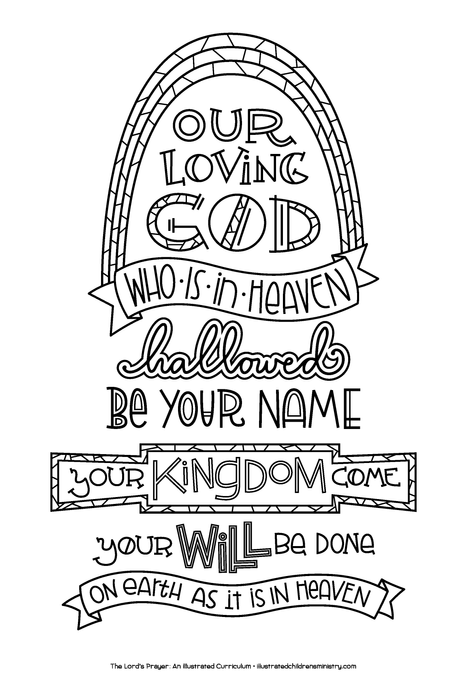 OUR
LOViNG
GOD
WHO·IS·in·HEAVEN
hallowed
Be YOUR NAME
YOUR KiNgDOM COME
YOUR WiLL Be DONE
ON eARth AS it IS IN HeAVEN
The Lord's Prayer: An Illustrated Curriculum • illustratedchildrensministry.com